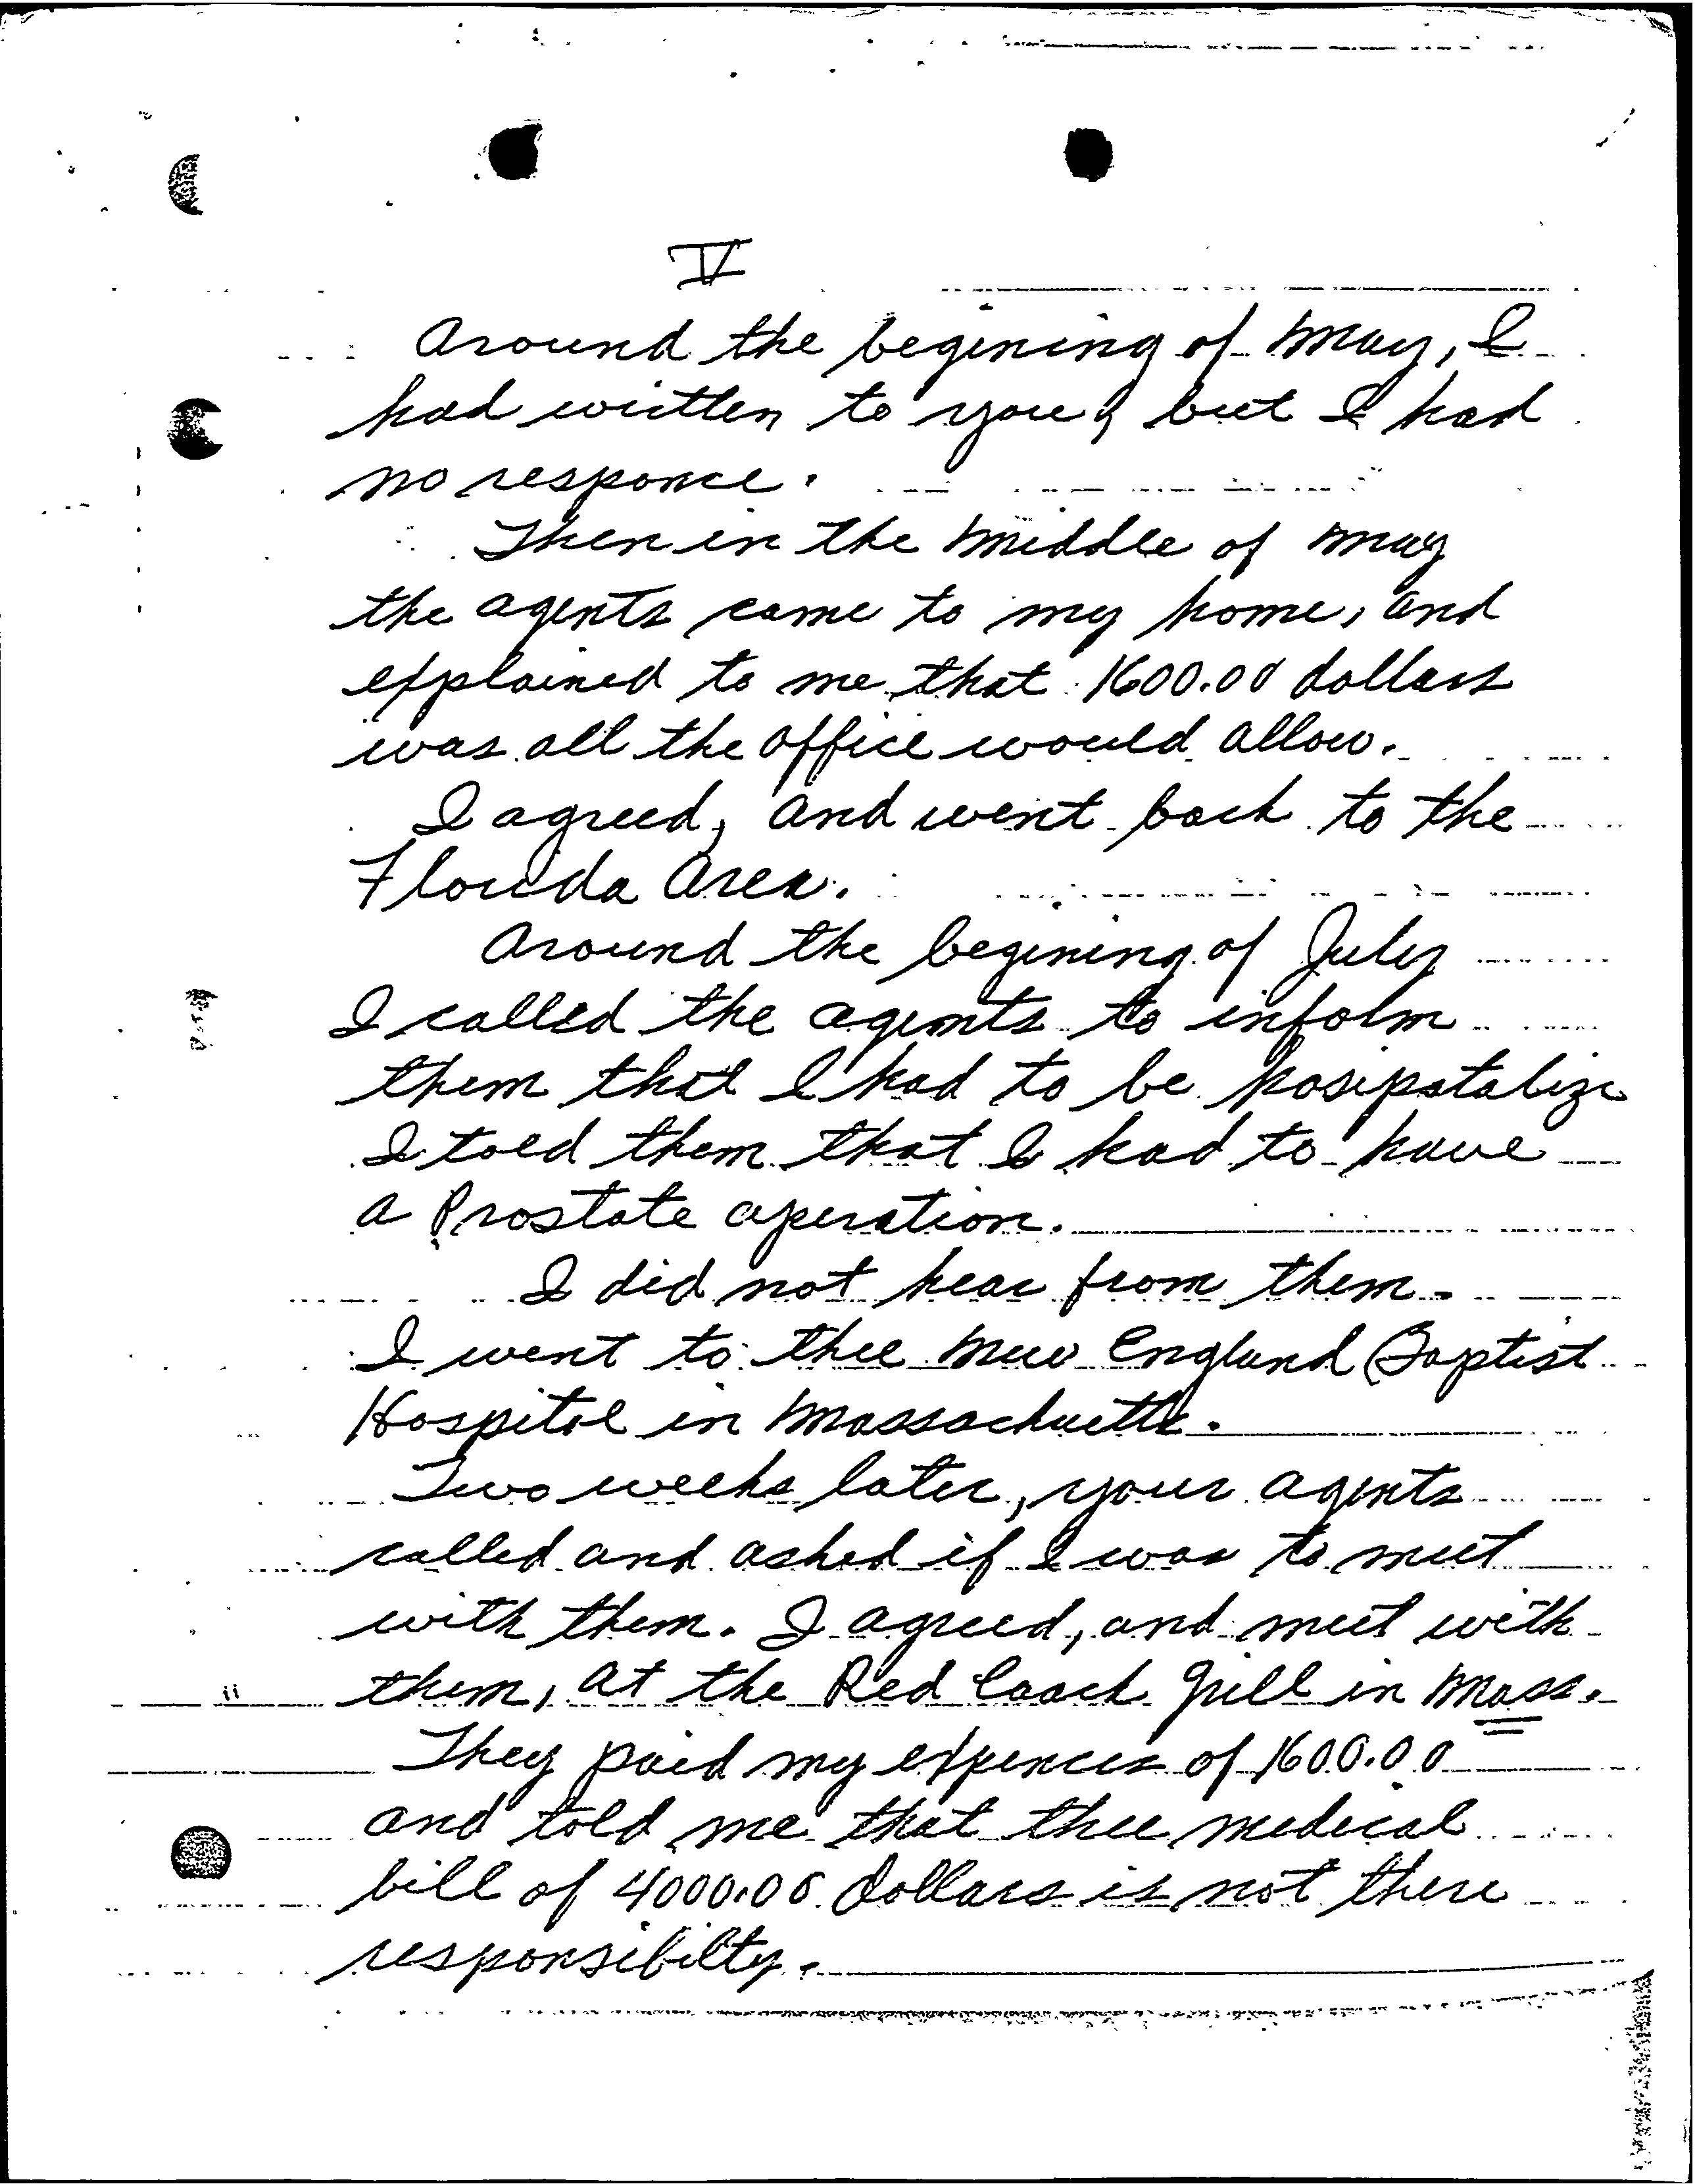 V
Around the begining of May, I
had written to you, but I had
no responce.
Then in the middle of May
the agents came to my home, and
explained to me that 1600.00 dollars
was all the office would allow.
I agreed, and went back to the
Florida Area.
Around the begining of July
I called the agents to inform
them that I had to be hosipatalize
I told them that I had to have
a Prostate operation.
I did not hear from them.
I went to thee New England Baptist
Hospital in Massachuetts.
Two weeks later, your agents
called and asked if I was to meet
with them. I agreed, and meet with
them, at the Red Coach Grill in Mass.
They paid my expences of 1600.00
and told me that thee medical
bill of 4000.00 dollars is not there
responsibilty.